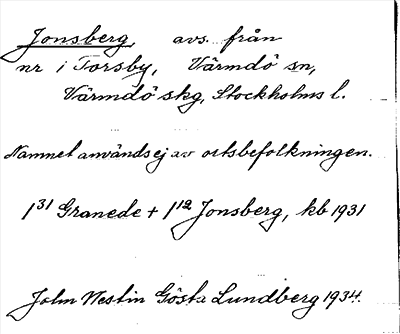 Jonsberg, avs. från
nr i Torsby, Värmdö sn,
Värmdö skg, Stockholms l.
Namnet användes ej av ortsbefolkningen.
1³¹ Granede + 1¹² Jonsberg, kb 1931
John Westin Gösta Lundberg 1934.